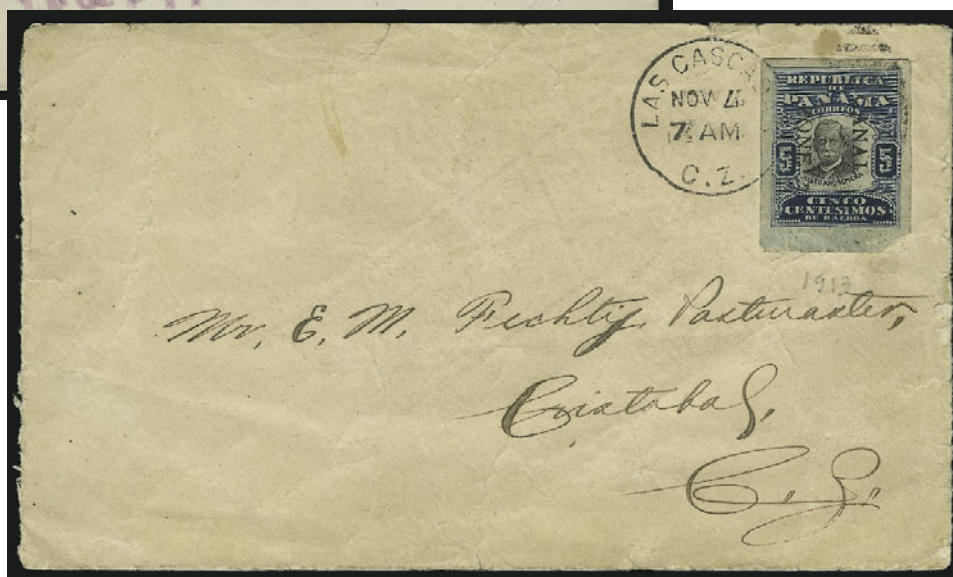 LAS CASCA
NOV 4
7 AM
C. Z.
REPUBLICA
DE
PANAMA
CORREOS
CANAL
ZONE
5 5
CINCO
CENTESIMOS
DE BALBOA
1913
Mr. E. M. Fechtig, Postmaster,
Cristobal,
C. Z.